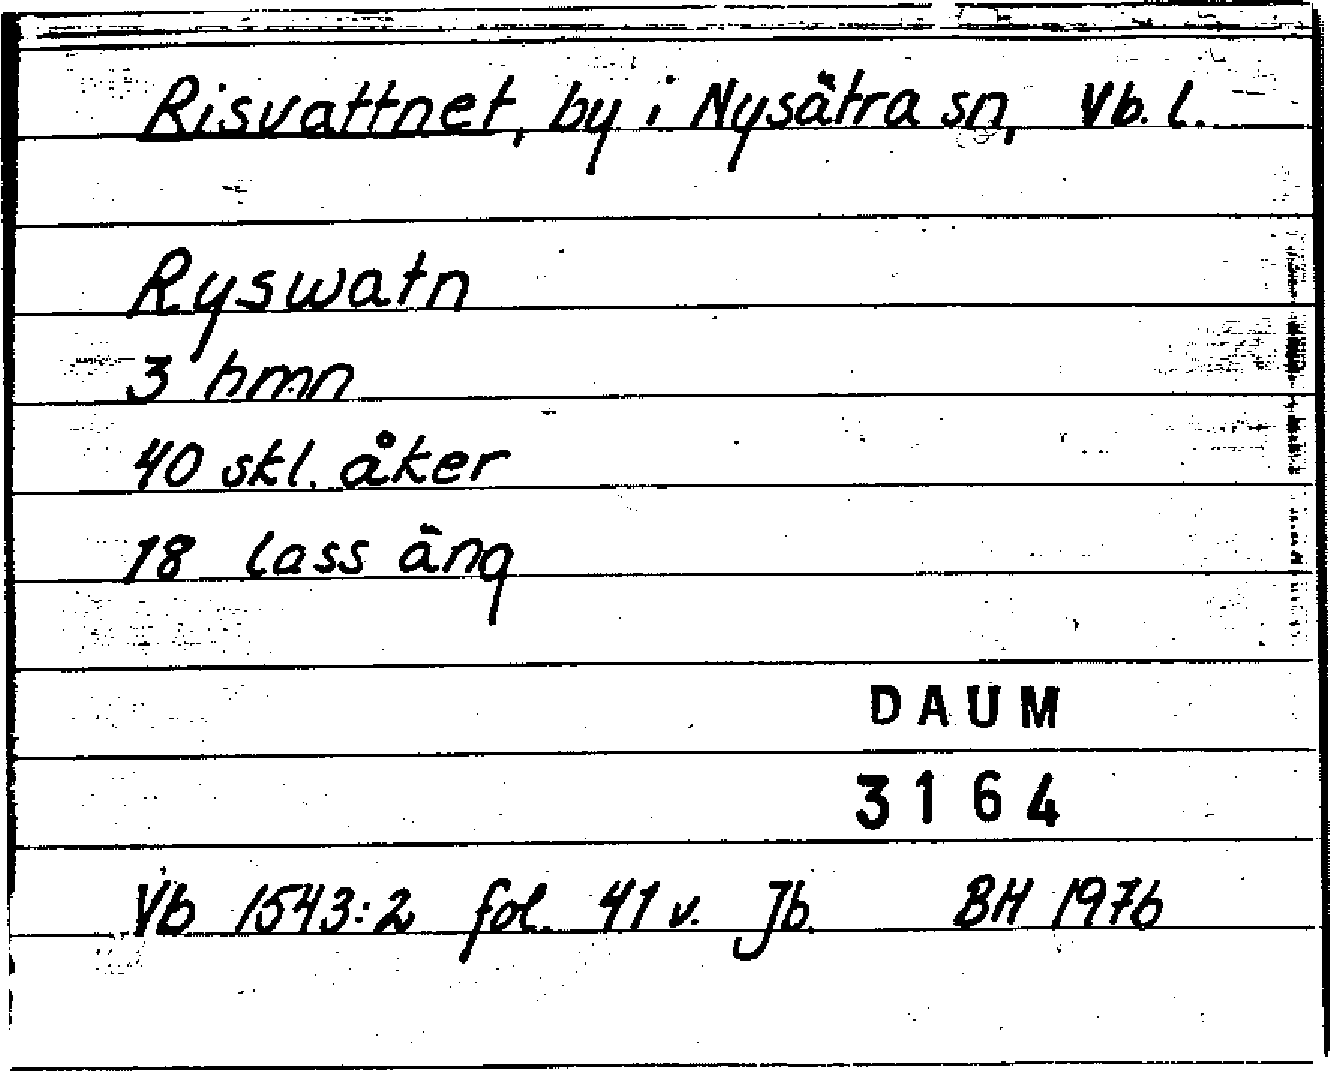 Risvattnet, by i Nysätra sn, Vb. l.
Ryswatn
3 hmn
40 skl. åker
18 lass äng
DAUM
3164
Vb 1543:2 fol. 41 v. Jb. BH 1976